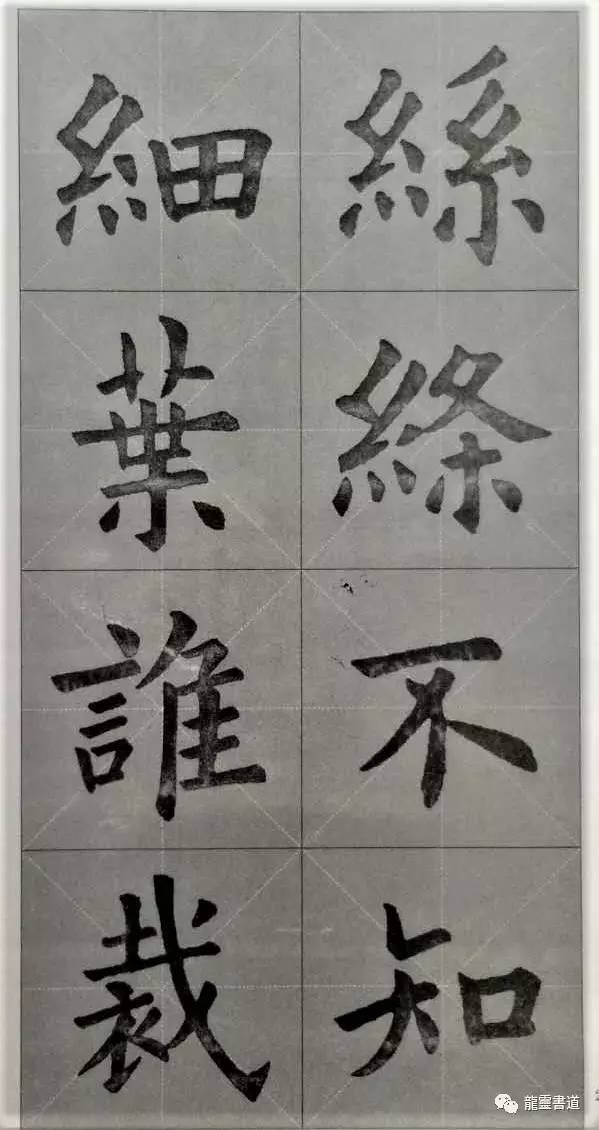 絲絛不知
細葉誰裁
龍靈書道